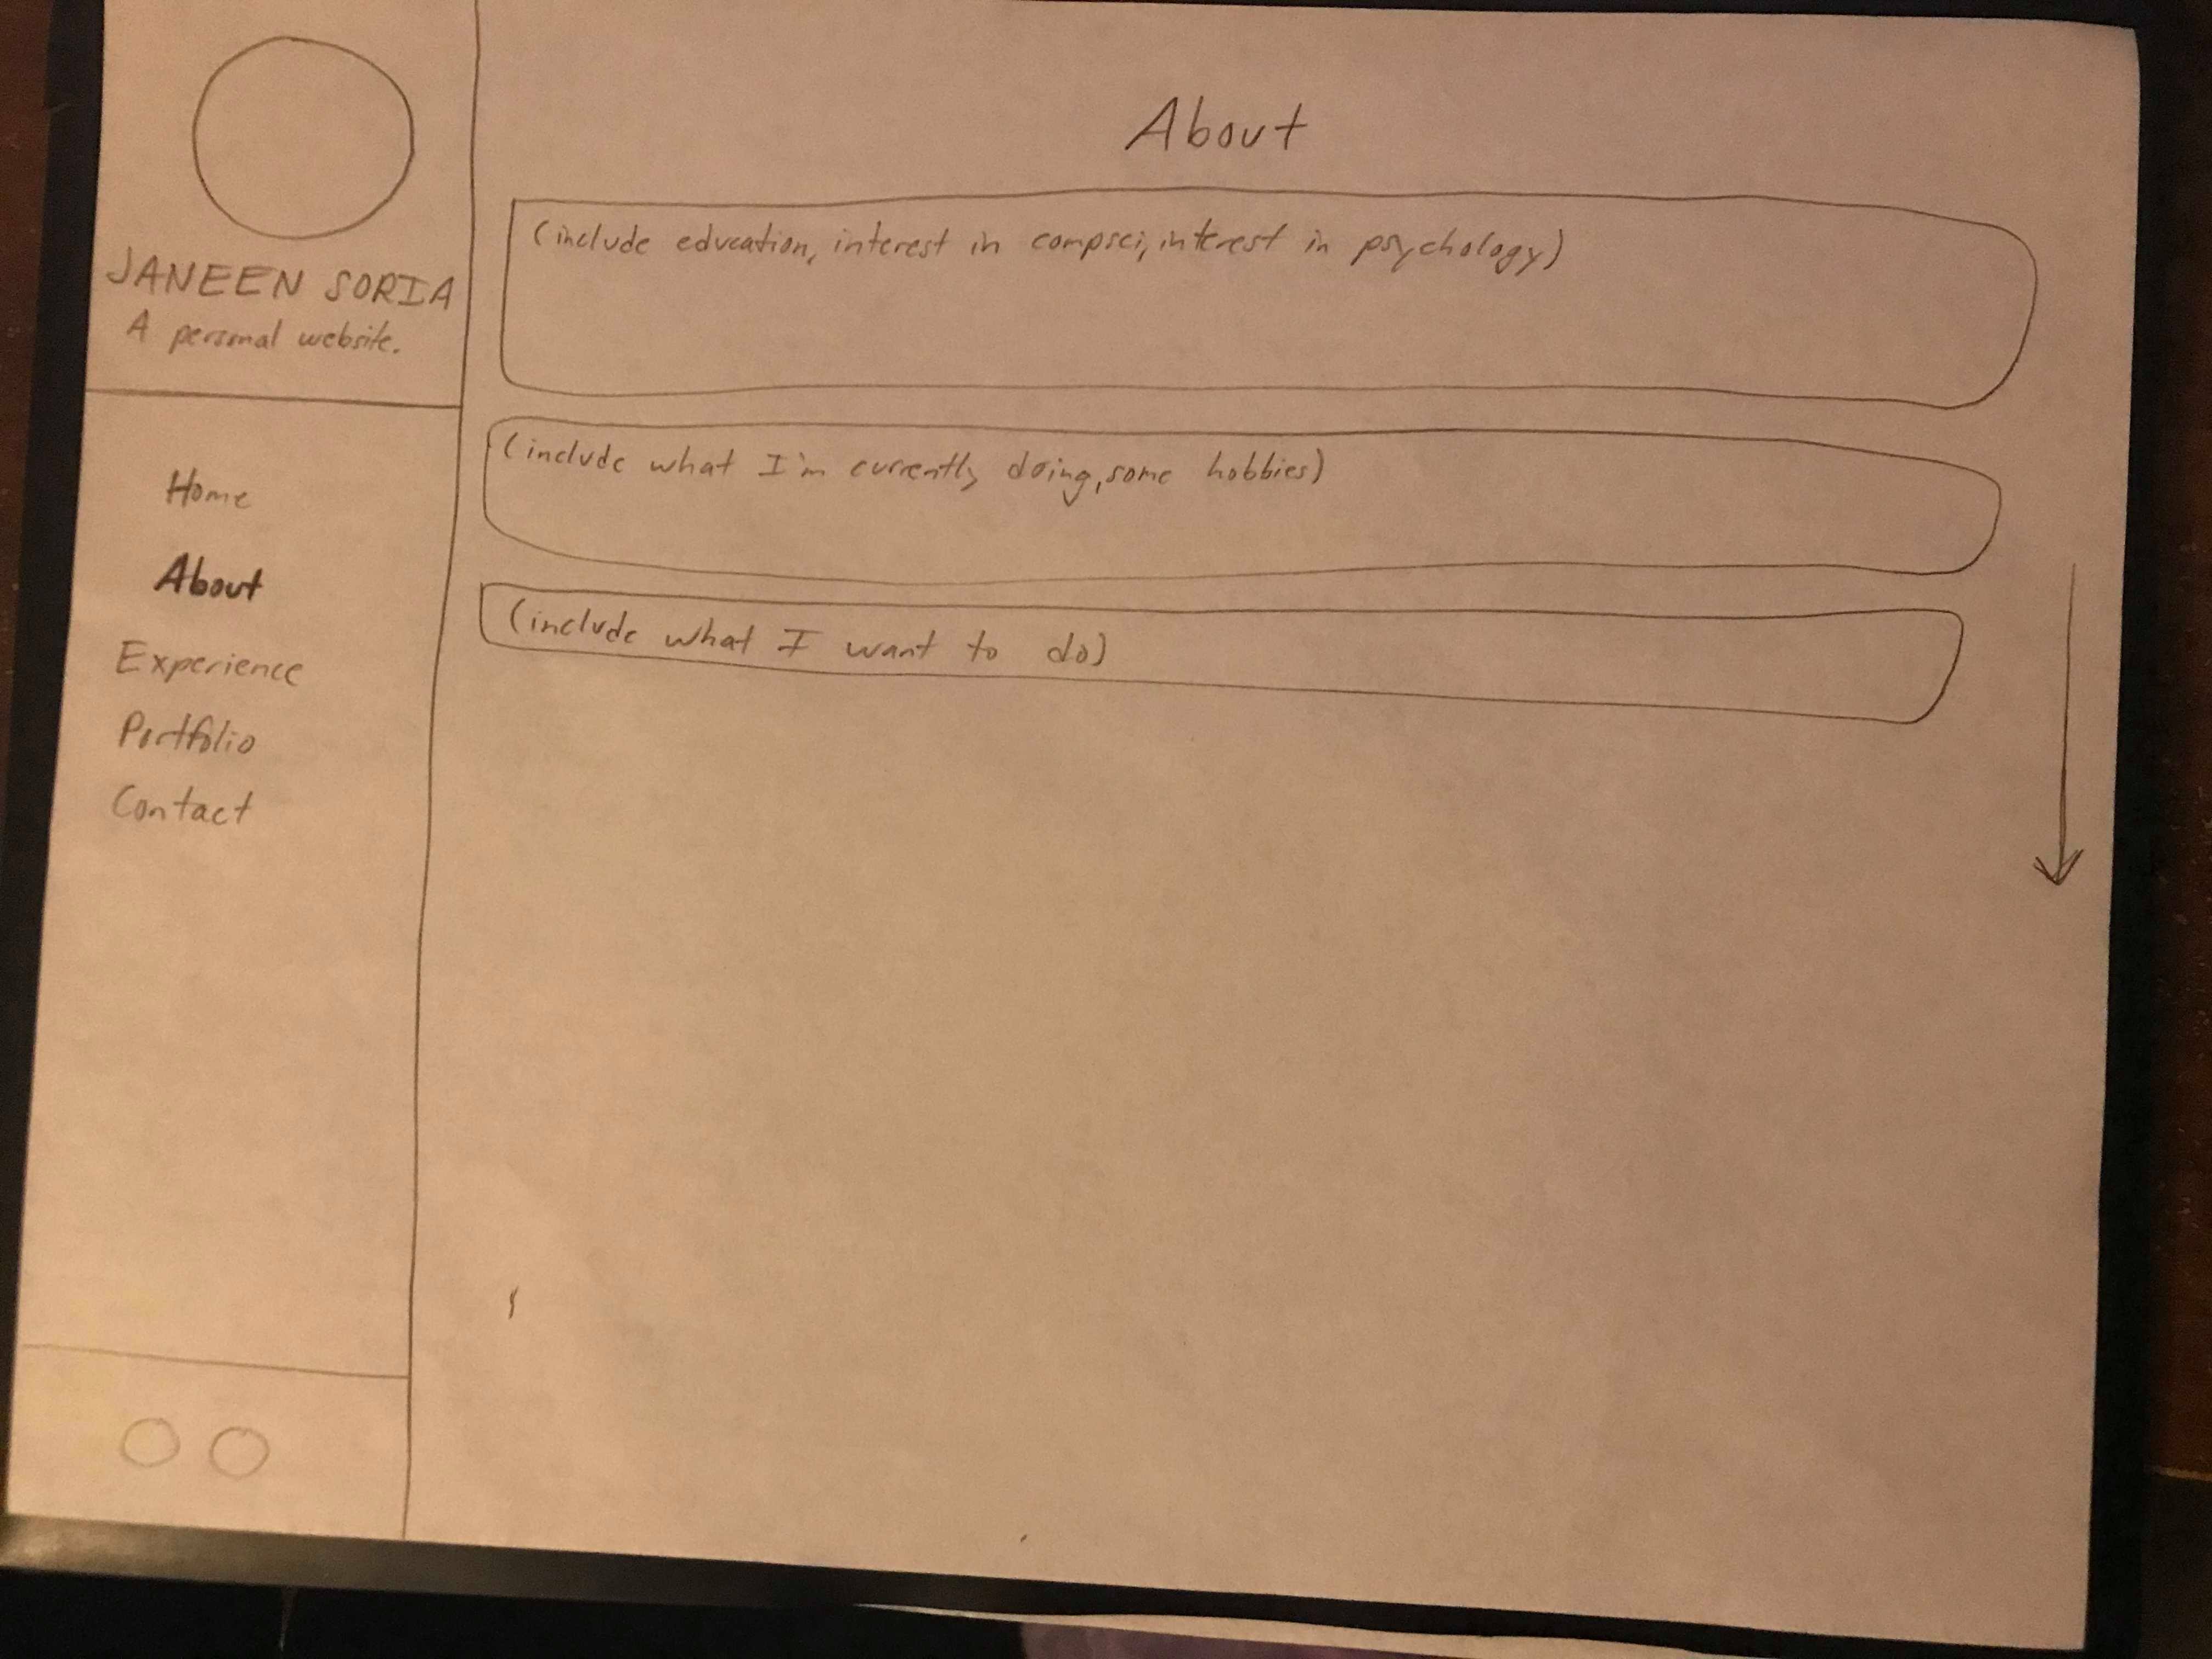 JANEEN SORIA
A personal website.
Home
About
Experience
Portfolio
Contact
About
(include education, interest in compsci, interest in psychology)
(include what I'm currently doing, some hobbies)
(include what I want to do)